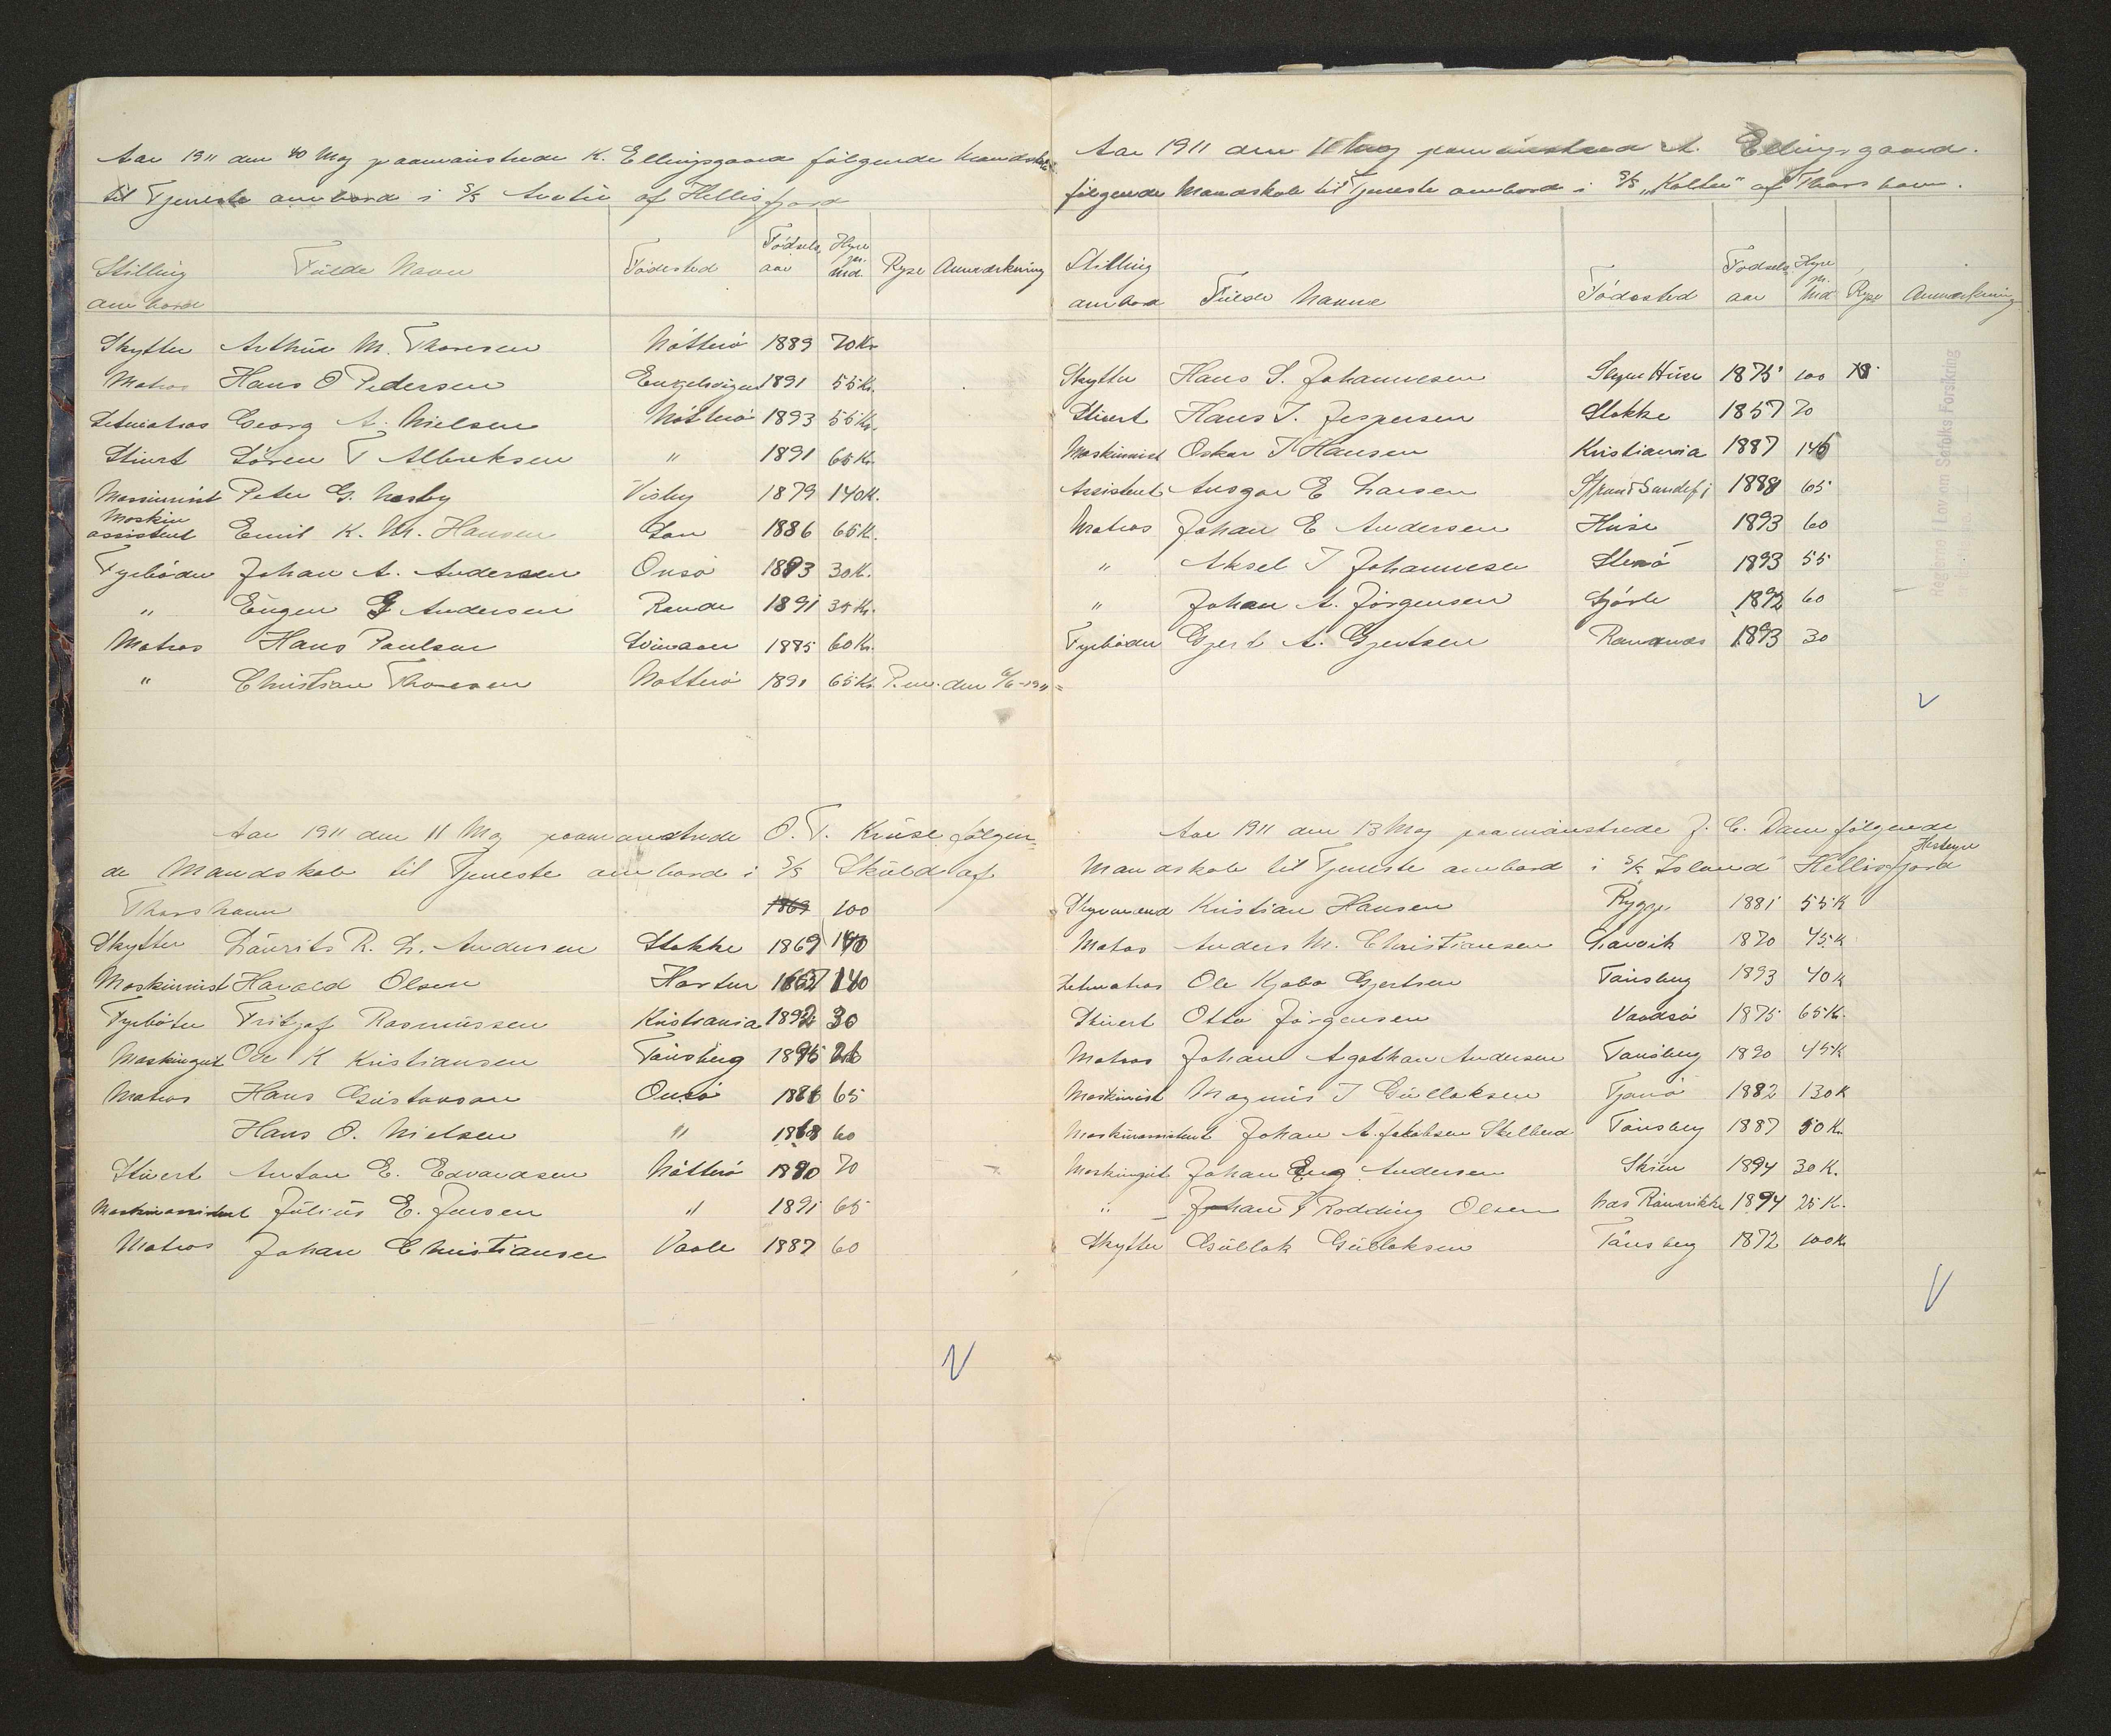 Aar 1911 den 10 Maj paamönstrede K. Ellingsgaard følgende Mandskab
til Tjeneste ombord i S/S Arctic af Hellisfjord
Stilling ombord Fulde Navn Födested Födsels aar Hyre pr. Md. Rejse Anmærkning
Skytter Arthur M. Thoresen Nötterö 1889 70 Kr
Matros Hans O Pedersen Engelsvigen 1891 55 Kr.
Letmatros Georg A. Nielsen Nötterö 1893 55 Kr.
Stuert Sören T Albreksen " 1891 65 Kr.
Massinist Peter G. Næsby Visby 1879 140 K.
Maskin assistent Emil K. M. Hansen Son 1886 65 K.
Fyrböder Johan A. Andersen Onsö 1893 30 K.
" Eugen G Andersen Raade 1891 35 Kr.
Matros Hans Paulsen Svinaoer 1885 60 Kr.
" Christian Thoresen Nötterö 1891 65 Kr P.m. den 6/6-1911=
Aar 1911 den 11 Maj paamönstrede O. T. Kruse følgen=
de Mandskab til Tjeneste ombord i S/S Skuld af
Thorshavn 1869 100
Skytter Laurits R. L. Andersen Stokke 1869 140
Maskinnist Harald Olsen Hortun 1867 140
Fyrböter Fritjof Rasmussen Kristiania 1892 30
Maskingut Ole K Kristiansen Tönsberg 1895 26
Matros Hans Gustavson Onsö 1886 65
Hans O. Nielsen " 1868 60
Stuert Anton E. Edvardsen Nötterö 1890 70
Maskinassistent Julius E. Jensen " 1891 65
Matros Johan Christiansen Vaale 1887 60
Aar 1911 den 11 Maj paamönstred A. Ellingsgaard.
følgende Mandskab til Tjeneste ombord i S/S „Kolter" af Thorshavn.
Stilling ombord Fulde Navne Födested Födsels aar Hyre pr. Md Rejse Anmærkning
Skytter Hans S. Johannesen 1875 100
Stuert Hans J. Jespersen Stokke 1857 70
Maskinnist Oskar T Hansen Kristiania 1887 145
Assistent Ansgar E Larsen 1888 65
Matros Johan E Andersen 1893 60
" Aksel J Johannesen 1893 55
" Johan A. Jörgensen 1892 60
Fyrböder Gjert A. Gjertsen Ramnæs 1893 30
Aar 1911 den 13 Maj paamönstrede J. C. Dam følgende
Mandskab til Tjeneste ombord i S/S „Island" Hellisfjord
Styrmand Kristian Hansen Rygge 1881 55 K
Matros Anders M. Christiansen Larvik 1870 45 K
Letmatros Ole Kjabo Gjertsen Tönsberg 1893 40 K
Stuert Otto Jörgensen Vardsö 1875 65 K.
Matros Johan Agathan Andersen Tönsberg 1890 45 K
Maskinist Magnus J Gullaksen Tjömö 1882 130 K
Maskinassistent Johan A. Jakobsen Skelbred Tönsberg 1887 50 Kr
Maskingut Johan Eug Andersen Skien 1894 30 K.
" Johan F Rodding Olsen 1894 25 K.
Skytter Gullak Gullaksen Tönsberg 1872 100 K